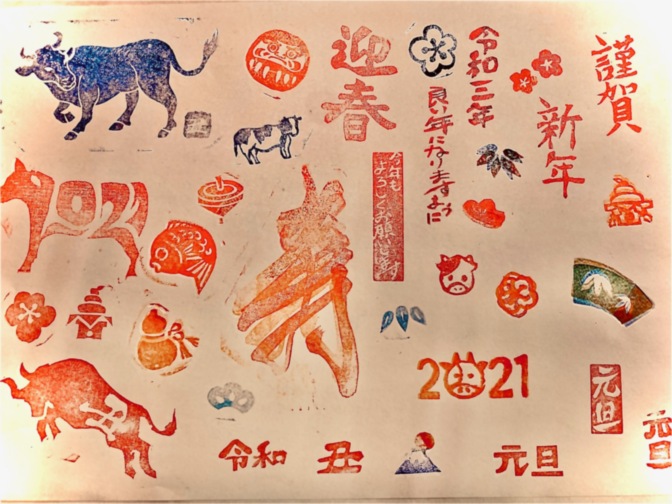 謹賀
新年
令和三年
良い年になりますように
迎
春
今年も
よろしくお願い致します
2021
寿
2021
元旦
元旦
令和
丑
元旦